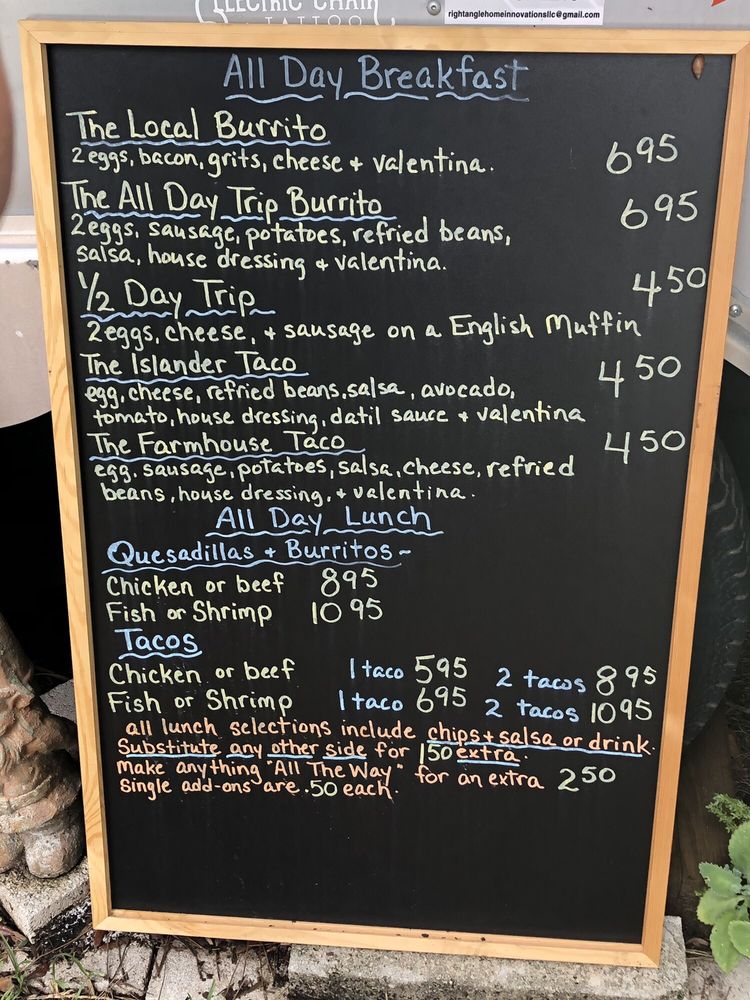 ELECTRIC CHAIR
TATTOO
rightanglehomeinnovationsllc@gmail.com
All Day Breakfast
The Local Burrito
2 eggs, bacon, grits, cheese + valentina. 6 95
The All Day Trip Burrito 6 95
2 eggs, sausage, potatoes, refried beans,
salsa, house dressing + valentina.
1/2 Day Trip 4 50
2 eggs, cheese, + sausage on a English Muffin
The Islander Taco 4 50
egg, cheese, refried beans, salsa, avocado,
tomato, house dressing, datil sauce + valentina
The Farmhouse Taco 4 50
egg, sausage, potatoes, salsa, cheese, refried
beans, house dressing, + valentina.
All Day Lunch
Quesadillas + Burritos ~
Chicken or beef 8 95
Fish or Shrimp 10 95
Tacos
Chicken or beef 1 taco 5 95 2 tacos 8 95
Fish or Shrimp 1 taco 6 95 2 tacos 10 95
all lunch selections include chips + salsa or drink.
Substitute any other side for 1 50 extra.
Make anything "All The Way" for an extra 2 50
Single add-ons are .50 each.